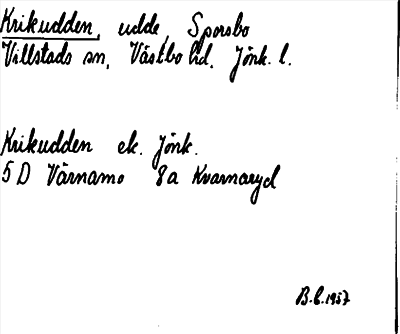 Krikudden, udde, Sporsbo
Villstads sn, Västbo hd. Jönk. l.
Krikudden ek. Jönk.
5 D Värnamo 8a Kvarnaryd
B.L. 1957